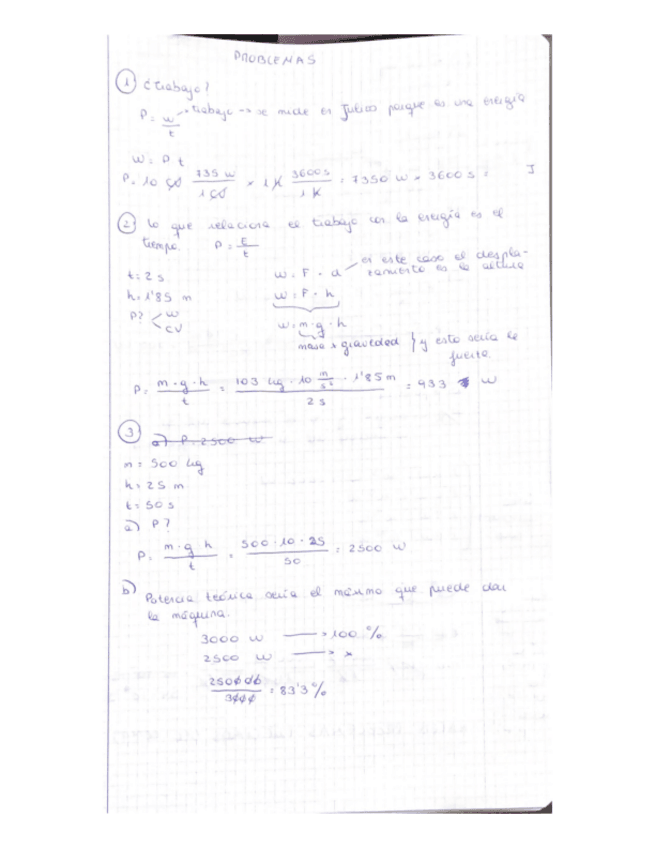 PROBLEMAS
① ¿trabajo?
P = w/t → trabajo → se mide en Julios porque es una energía
W = P t
P = 10 CV 735 w / 1 CV × 1 h 3600 s / 1 h = 7350 w × 3600 s = J
② Lo que relaciona el trabajo con la energía es el
tiempo. P = E/t
t = 2 s
h = 1'85 m
P? < w
CV
w = F · d en este caso el despla-
zamiento es la altura
w = F · h
w = m · g · h
masa × gravedad } y esto sería la
fuerza
P = m · g · h / t = 103 kg · 10 m/s² · 1'85 m / 2 s = 933 w
③ a) P = 2500 w
m = 500 kg
h = 25 m
t = 50 s
a) P?
P = m · g · h / t = 500 · 10 · 25 / 50 = 2500 w
b) Potencia teórica sería el máximo que puede dar
la máquina.
3000 w → 100 %
2500 w → x
250000 / 3000 = 83'3 %